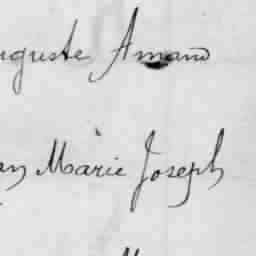 uguste Amand
an Marie Joseph